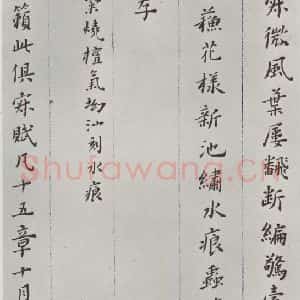 微風葉屢翻斷編驚
花樣新池繡水痕蟲
燒檀氣坳汕刻水痕
籟此俱寂賦凡十五章十月
Shufawang.Cn